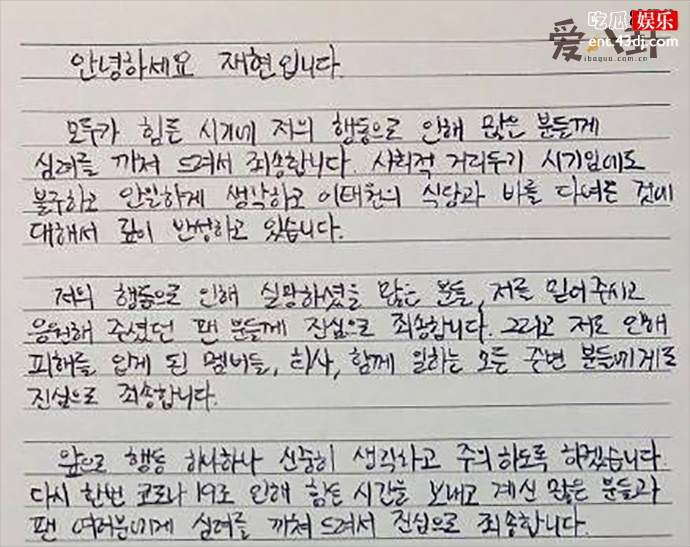 吃瓜 娱乐
ent.43di.com
爱八卦
ibagua.com.cn
안녕하세요 재현입니다.
모두가 힘든 시기에 저의 행동으로 인해 많은 분들께
심려를 끼쳐 드려서 죄송합니다. 사회적 거리두기 시기임에도
불구하고 안일하게 생각하고 이태원의 식당과 바를 다녀온 것에
대해서 깊이 반성하고 있습니다.
저의 행동으로 인해 실망하셨을 많은 분들, 저를 믿어주시고
응원해 주셨던 팬 분들께 진심으로 죄송합니다. 그리고 저로 인해
피해를 입게 된 멤버들, 회사, 함께 일하는 모든 주변 분들에게도
진심으로 죄송합니다.
앞으로 행동 하나하나 신중히 생각하고 주의 하도록 하겠습니다.
다시 한번 코로나 19로 인해 힘든 시간을 보내고 계신 많은 분들과
팬 여러분에게 심려를 끼쳐 드려서 진심으로 죄송합니다.